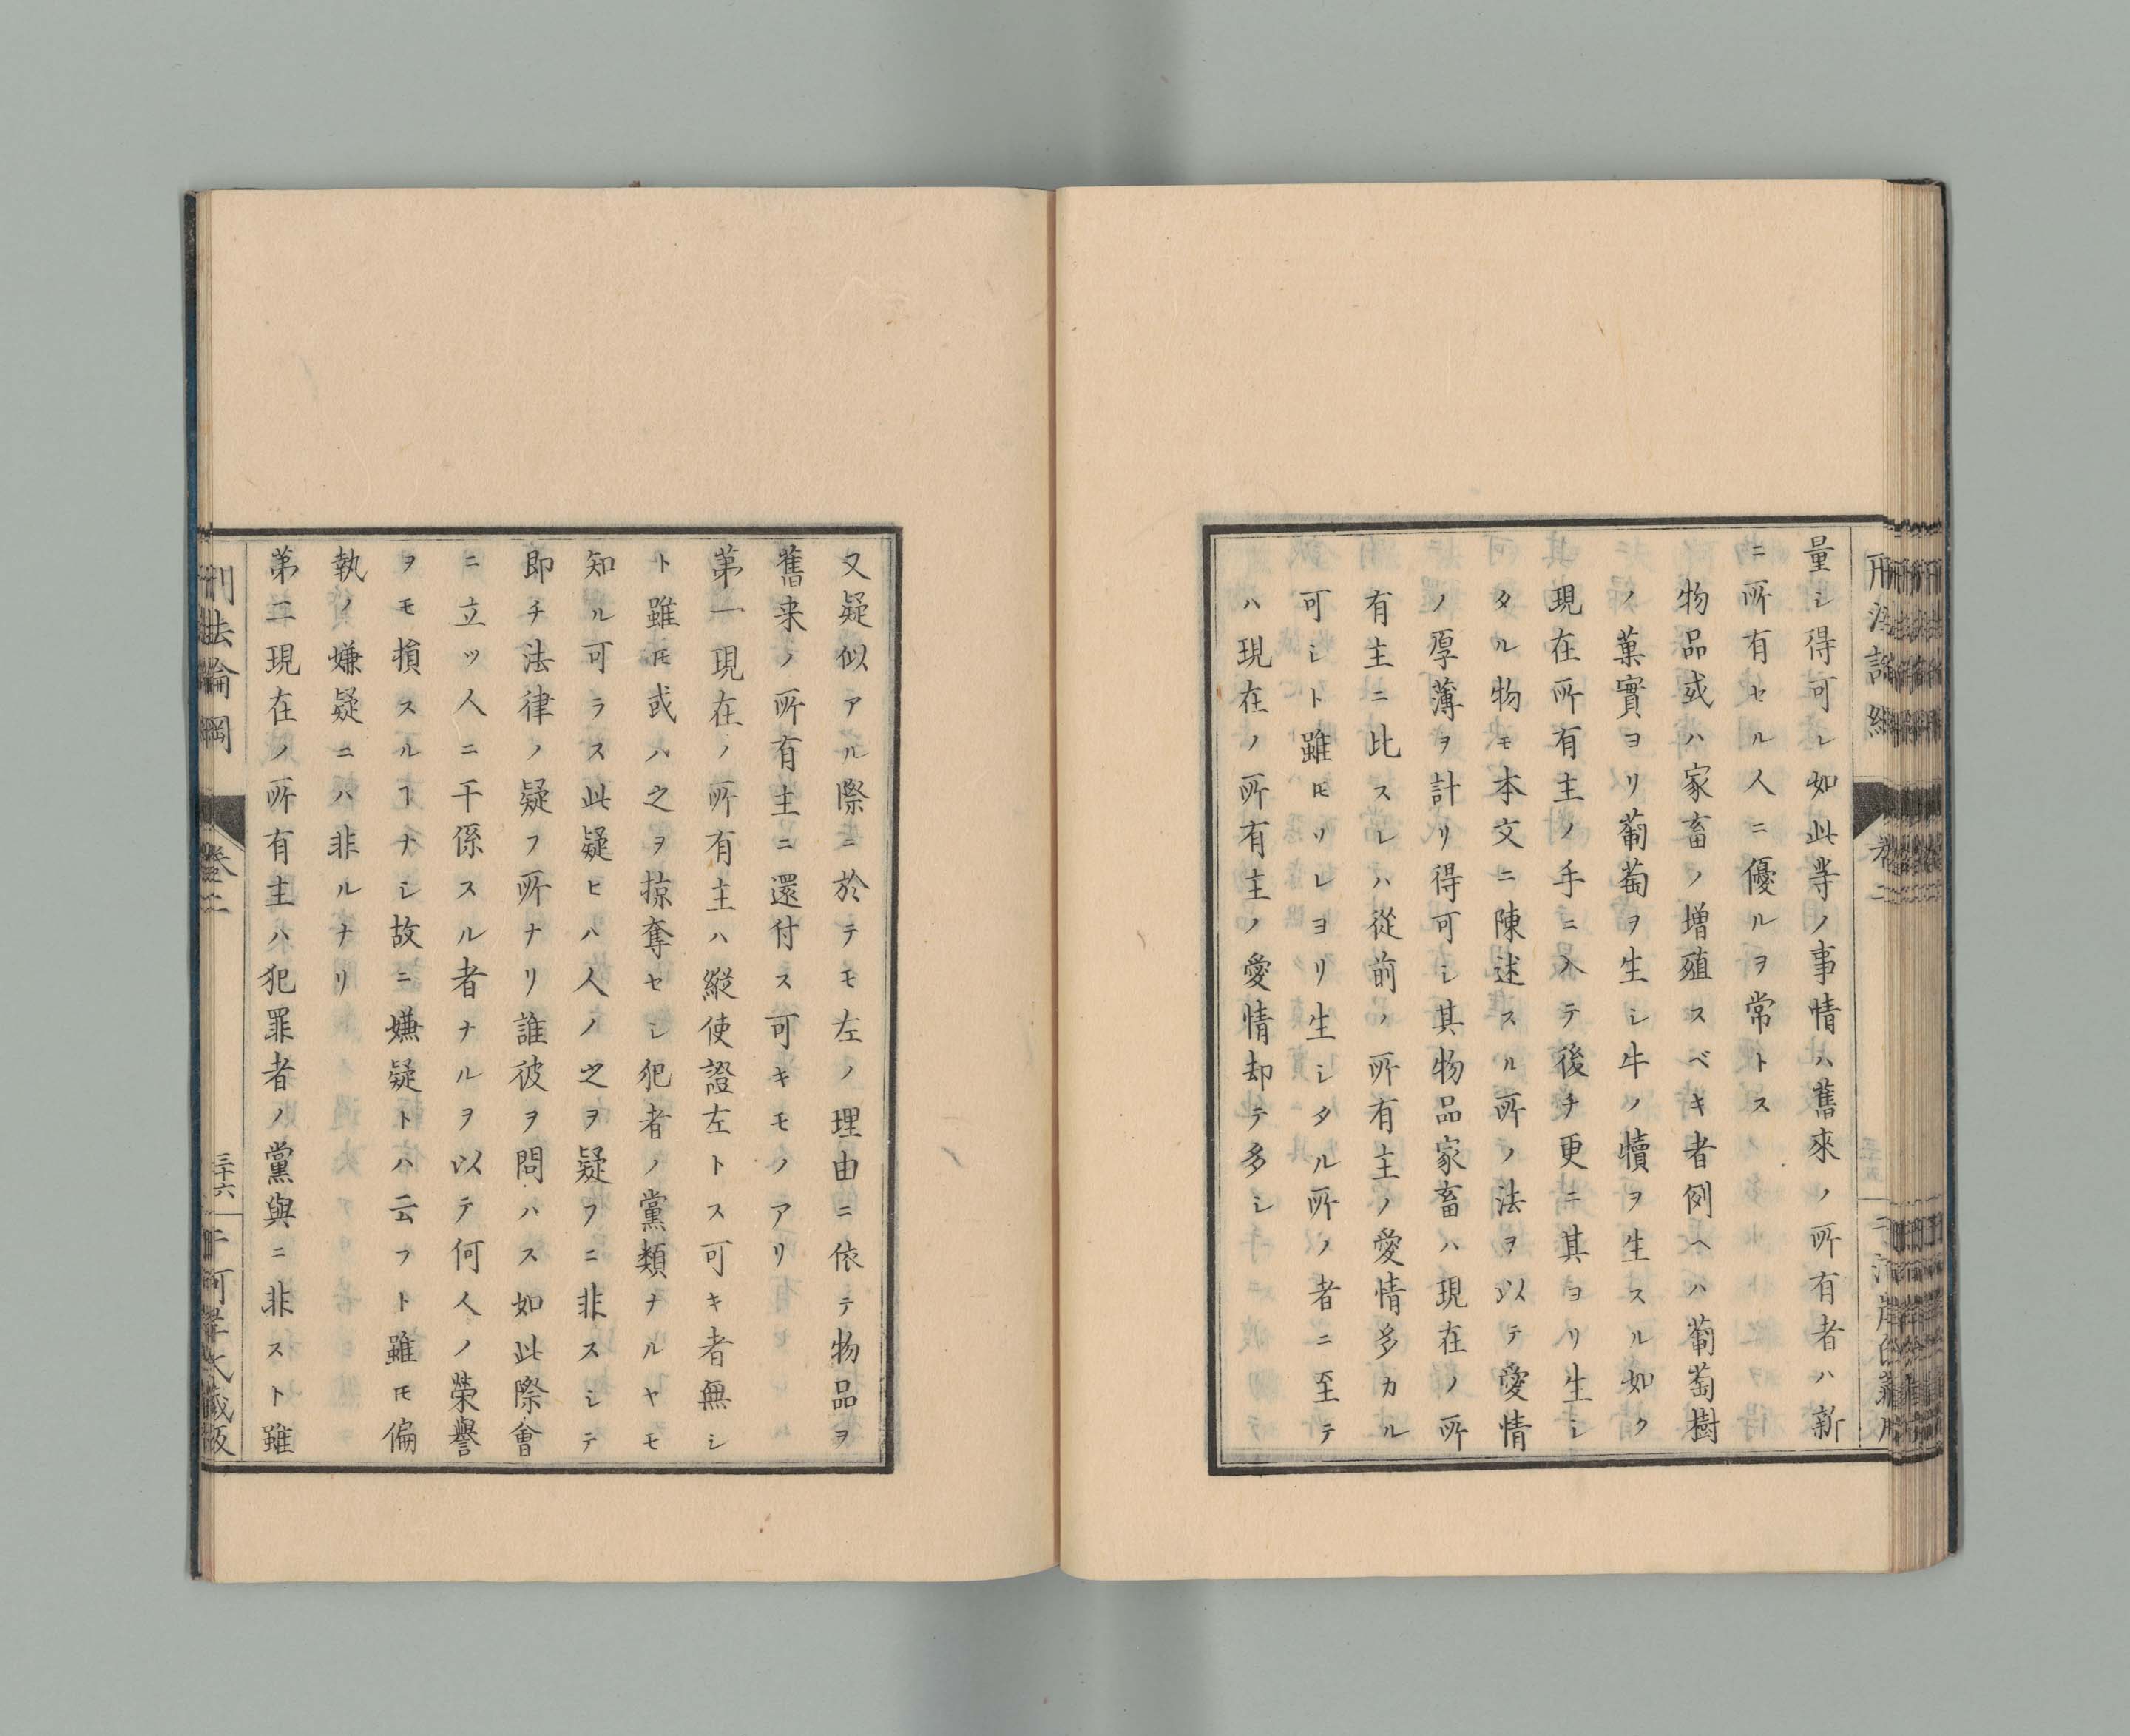 量シ得可シ如此等ノ事情ハ舊來ノ所有者ハ新
ニ所有セル人ニ優ルヲ常トス
物品或ハ家畜ノ増殖スベキ者例ヘハ葡萄樹
ノ菓實ヨリ葡萄ヲ生シ牛ノ犢ヲ生スル如ク
現在所有主ノ手ニ入テ後チ更ニ其ヨリ生シ
タル物モ本文ニ陳述スル所ノ法ヲ以テ愛情
ノ厚薄ヲ計リ得可シ其物品家畜ハ現在ノ所
有主ニ此スレハ從前ノ所有主ノ愛情多カル
可シト雖モソレヨリ生シタル所ノ者ニ至テ
ハ現在ノ所有主ノ愛情却テ多シ
又疑似アル際ニ於テモ左ノ理由ニ依テ物品ヲ
舊来ノ所有主ニ還付ス可キモノアリ
第一現在ノ所有主ハ縦使證左トス可キ者無シ
ト雖モ或ハ之ヲ掠奪セシ犯者ノ黨類ナルヤモ
知ル可ラス此疑ヒハ人ノ之ヲ疑フニ非スシテ
即チ法律ノ疑フ所ナリ誰彼ヲ問ハス如此際會
ニ立ツ人ニ干係スル者ナルヲ以テ何人ノ榮譽
ヲモ損スルヿナシ故ニ嫌疑トハ云フト雖モ偏
執ノ嫌疑ニハ非ルナリ
第二現在ノ所有主ハ犯罪者ノ黨與ニ非スト雖
刑法論綱
卷二
三十六